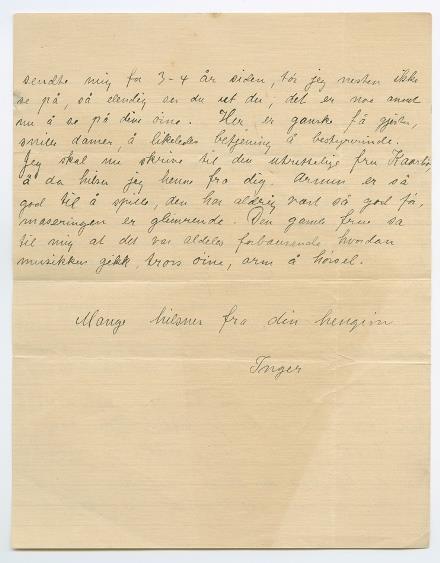 sendte mig for 3-4 år siden, tør jeg nesten ikke
se på, så elendig ser du ut der, det er noe med
nu å se på dine øine. Her er ganske få gjester,
snille damer, å likeledes betjening å bestyrerinde.
Jeg skal nu skrive til den utrettelige fru
å da hilser jeg henne fra dig. Armen er så
god til å spille, den har aldrig vært så god før,
maseringen er glimrende. Den gamle frue sa
til mig at det var aldeles forbausende hvordan
musikken gikk, trots øine, arm å hørsel.
Mange hilsner fra din hengivn
Inger